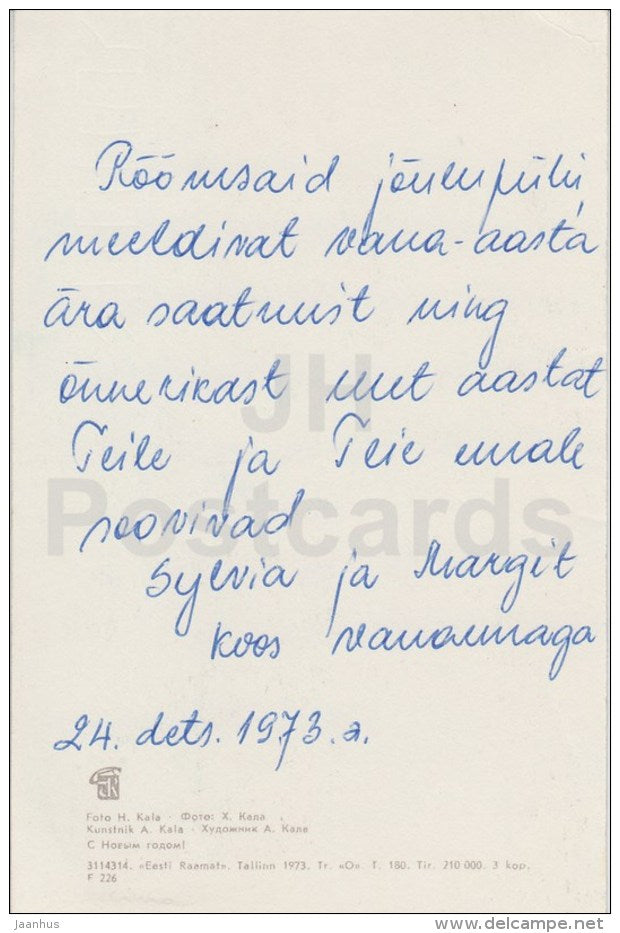 Rõõmsaid jõulupühi,
meeldivat vana-aasta
ära saatmist ning
õnnerikast uut aastat
Teile ja Teie emale
soovivad
Sylvia ja Margit
koos vanaemaga
24. dets. 1973.a.
JH
Postcards
Foto H. Kala · Фото: Х. Кала
Kunstnik A. Kala · Художник А. Кала
С Новым годом!
3114314. «Eesti Raamat». Tallinn 1973. Tr. «O». T. 180. Tir. 210 000. 3 kop.
F 226
jaanhus
www.delcampe.net